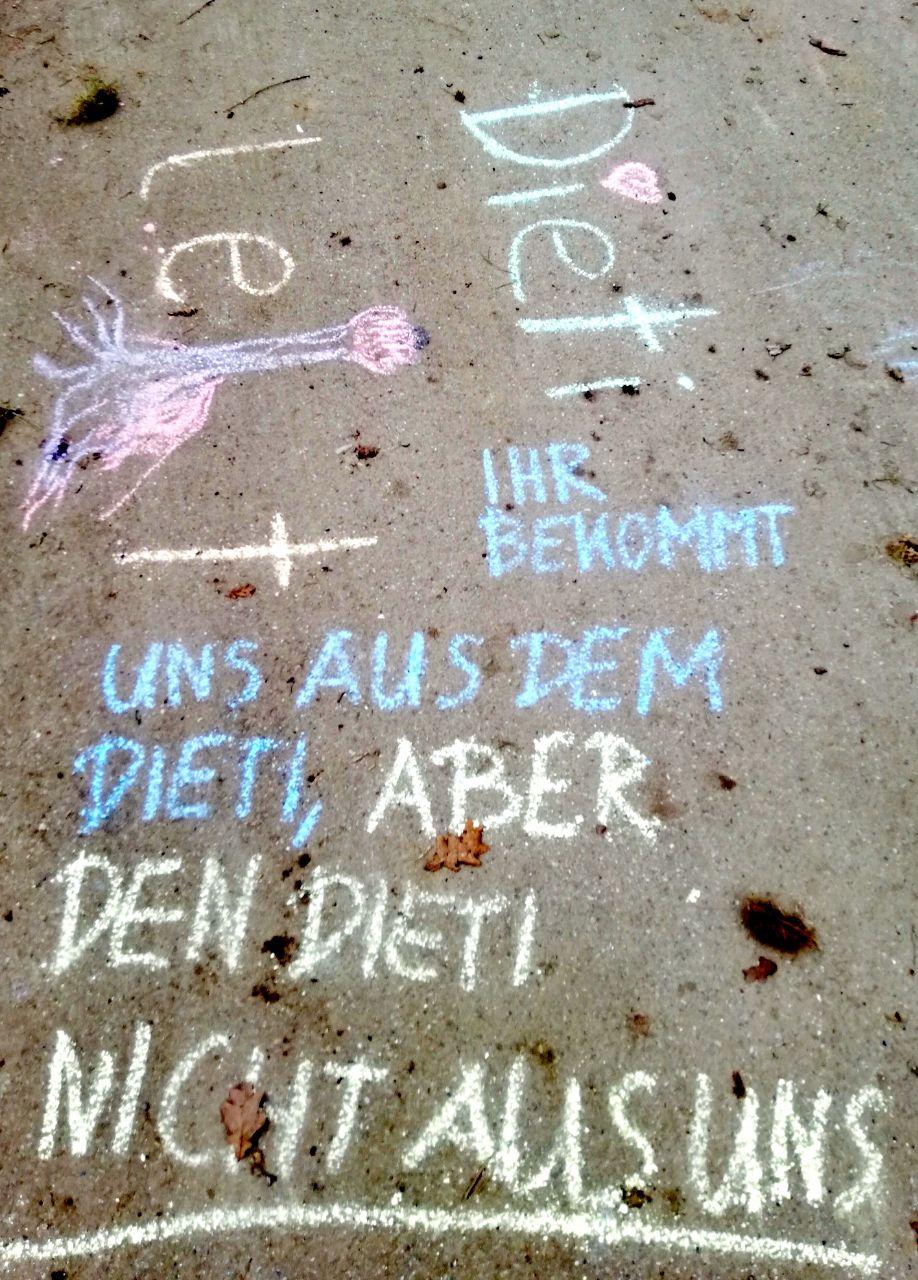 Dieti
lebt
IHR
BEKOMMT
UNS AUS DEM
DIETI, ABER
DEN DIETI
NICHT AUS UNS